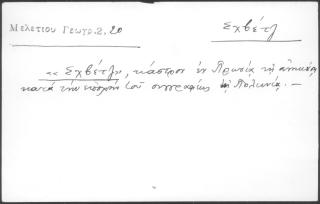 Μελετίου Γεωγρ. 2, 20
Σχβέτζ
«Σχβέτζ», κάστρον ἐν Πρωσίᾳ τῇ ἀνηκούσῃ
κατὰ τὴν ἐποχὴν τοῦ συγγραφέως τῇ Πολωνίᾳ. —